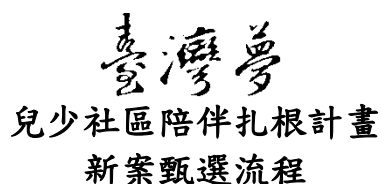 臺灣夢
兒少社區陪伴扎根計畫
新案甄選流程